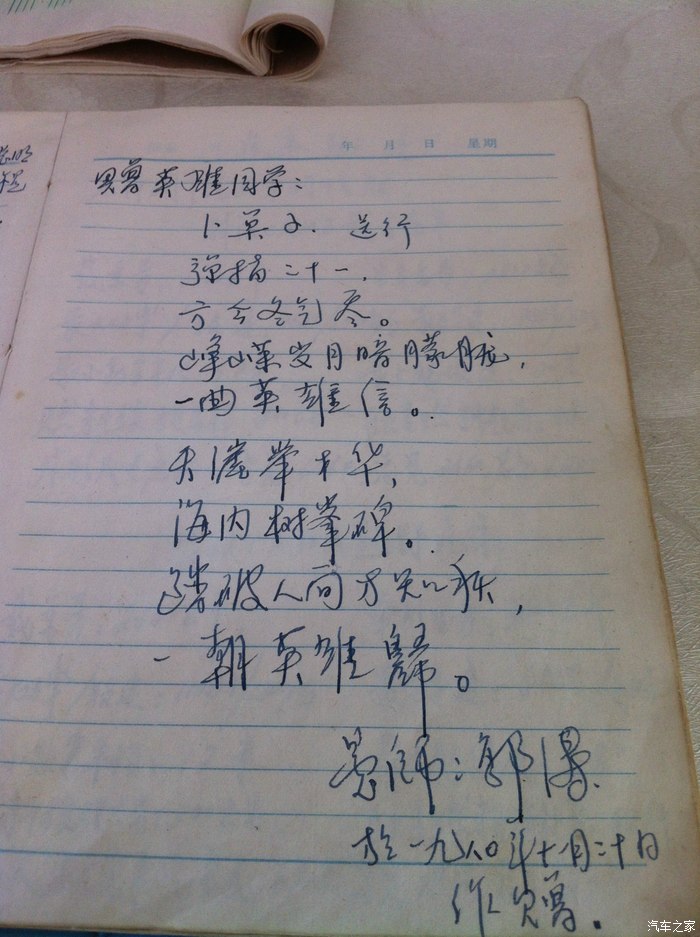 年 月 日 星期
赠英雄同学：
卜算子．送行
弹指二十一，
方令冬气尽。
峥嵘岁月暗朦胧，
一曲英雄信。
天涯举才华，
海内树丰碑。
踏破人间方知秋，
一朝英雄归。
郭
於一九八〇年十一月二十日
作赠。
汽车之家